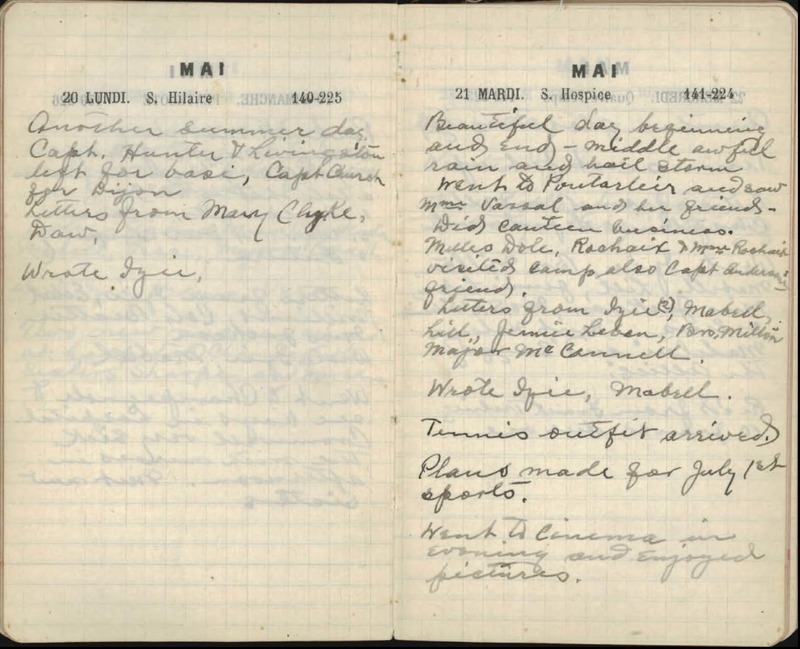 MAI
20 LUNDI. S. Hilaire 140-225
Another summer day
Capt. Hunter & Livingston
left for base, Capt Church
for Dijon
Letters from Mary Clyke,
Daw,
Wrote Izie,
MAI
21 MARDI. S. Hospice 141-224
Beautiful day beginning
and end - middle awful
rain and hail storm
Went to Pontarleir and saw
Mme Vassal and her friend -
Did canteen business.
Milles Dole, Rochaix & Mme Rochaix
visited camp, also Capt Anderson's
friend.
Letters from Izie(2), Mabell,
Lill, Jennie Leban, Bro. Milton
Major McCannell.
Wrote Izie, Mabell.
Tennis outfit arrived
Plans made for July 1st
sports.
Went to Cinema in
evening and enjoyed
pictures.